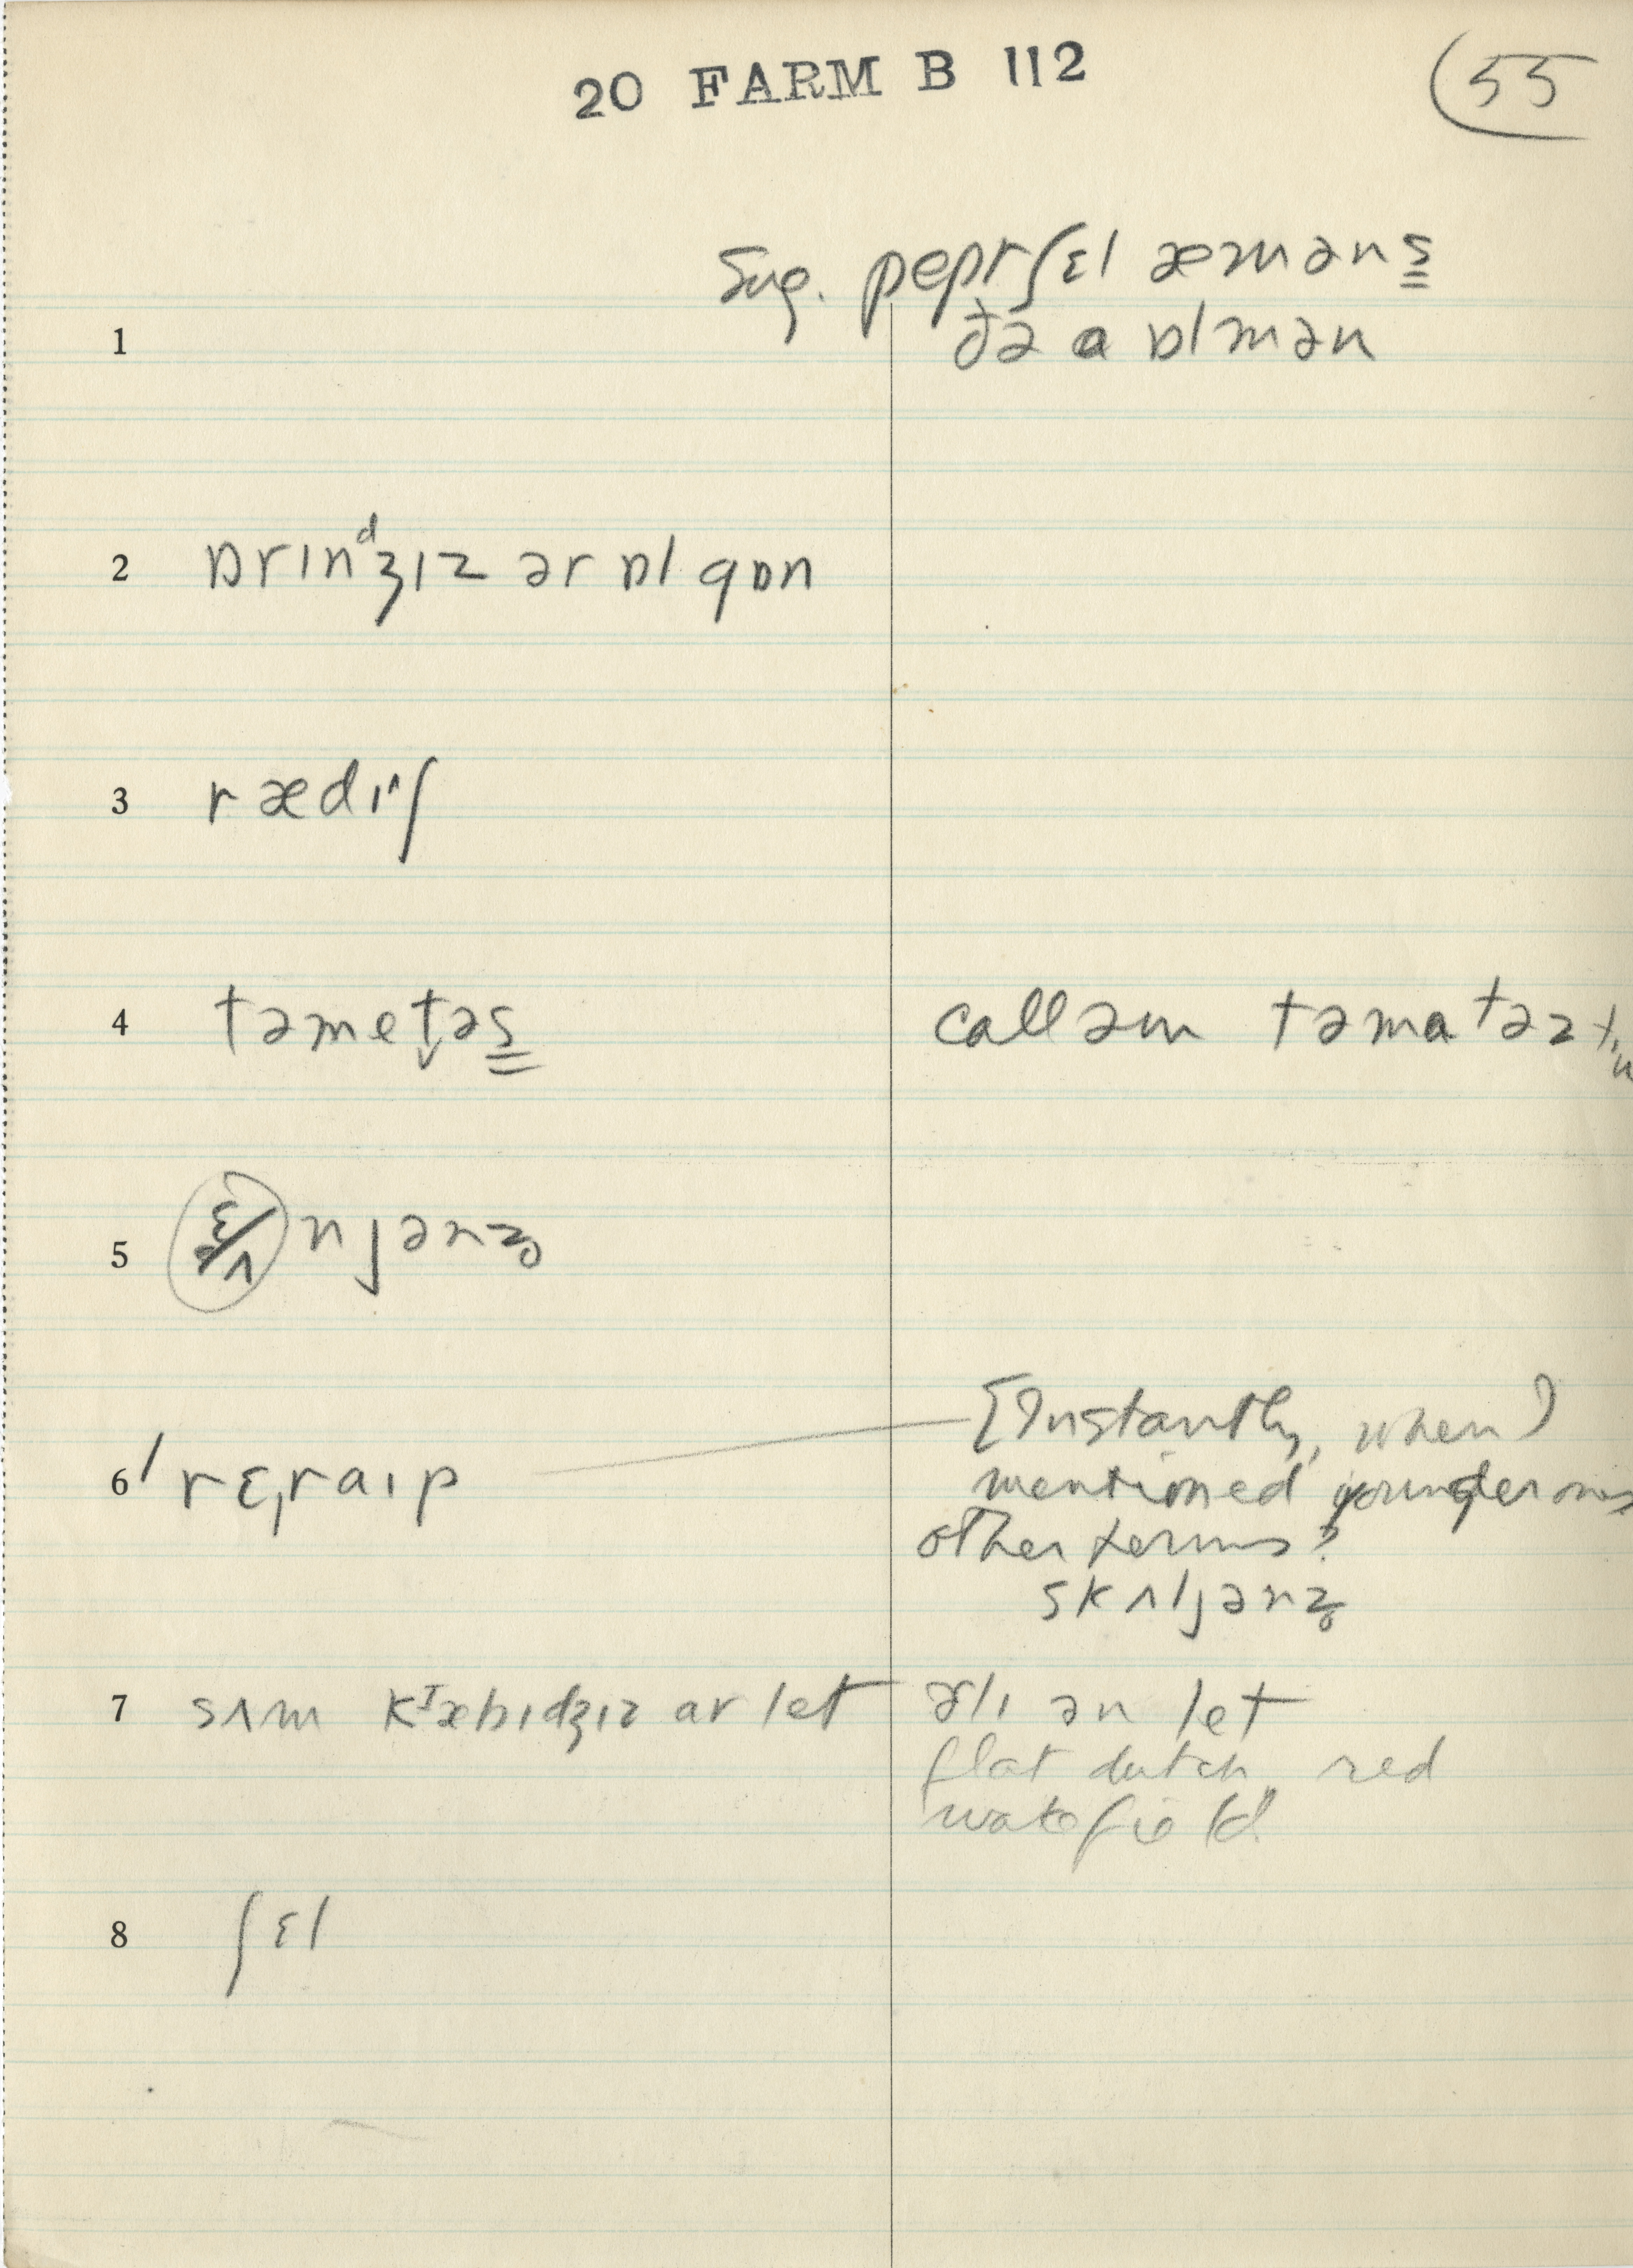 20 FARM B 112
55
Sug. pepɪʃɛl æməns̳
1 ðə a ɒlmən
2 ɒrɪnᵈʒɪz ər ɒl gɒn
3 rædɪ^ʃ
4 təmet̬əs̳ call əm təmatəz
5 ɛ/ʌ njənz̥
6 / rɛ,raɪp [Instantly, when)
mentioned younger ones
other terms?
skʌljənz̥
7 sʌm kᴵæbɪdʒɪz ar let ɚlɪ ən let
flat dutch, red
wakefield
8 ʃɛl